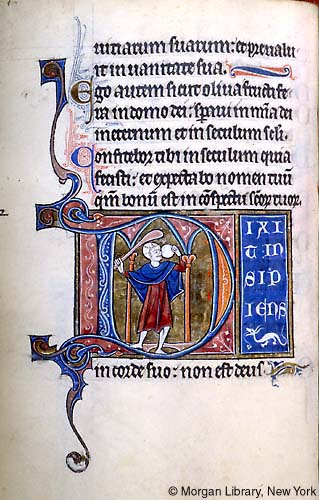 uitiarum suarum: et preualu
it in uanitate sua.
Ego autem sicut oliua fructife
ra in domo dei: speraui in mīa dī
in eternum et in seculum scłi.
Confitebor tibi in seculum quia
fecisti: et expectabo nomen tuū
qm̄ bonū est in cōspectu scōr tuor.
D IXI
T IN
SIPI
ENS
in corde suo: non est deus
© Morgan Library, New York